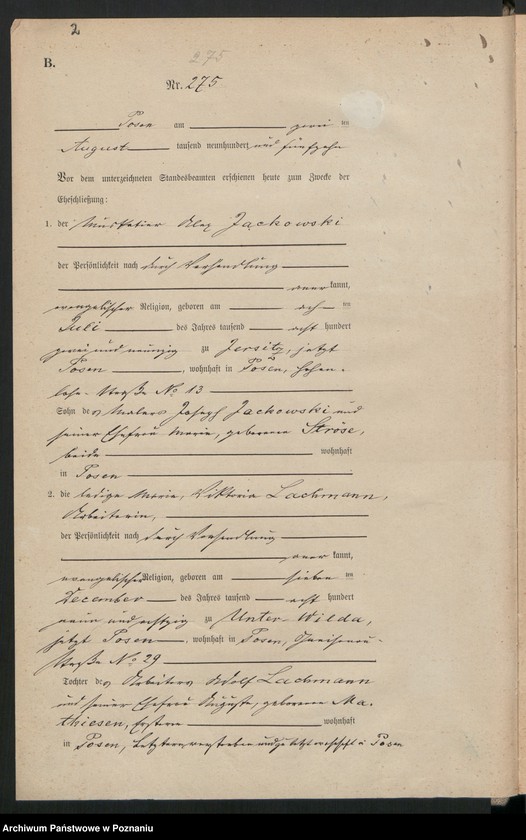 2
B.
275
Nr. 275
Posen am zwei ten
August tausend neunhundert und fünfzehn
Vor dem unterzeichneten Standesbeamten erschienen heute zum Zwecke der
Eheschließung:
1. der Musketier Alex Jackowski
der Persönlichkeit nach durch Verhandlung
kannt,
evangelischer Religion, geboren am ten
Juli des Jahres tausend acht hundert
zwei und neunzig zu Jersitz, jetzt
Posen, wohnhaft in Posen, Hohen-
lohe-Straße No 13
Sohn des Malers Joseph Jackowski und
seiner Ehefrau Marie, geborene Ströse,
beide wohnhaft
in Posen
2. die ledige Marie, Viktoria Lachmann,
Arbeiterin,
der Persönlichkeit nach durch Verhandlung
kannt,
evangelischer Religion, geboren am sieben ten
December des Jahres tausend acht hundert
neun und achtzig zu Unter-Wilda,
jetzt Posen, wohnhaft in Posen,
Straße No 29
Tochter des Arbeiters Adolf Lachmann
und seiner Ehefrau Auguste, geborene Ma-
thiesen, wohnhaft
in Posen, zu Posen
Archiwum Państwowe w Poznaniu